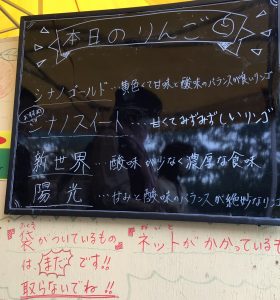 本日のりんご
シナノゴールド…黄色くて甘味と酸味のバランスが良いリンゴ
シナノスイート…甘くてみずみずしいリンゴ
新世界…酸味が少なく濃厚な食味
陽光…甘みと酸味のバランスが絶妙なリンゴ
袋がついているもの
は、まだです!!
取らないでね!!
ネットがかかっているも